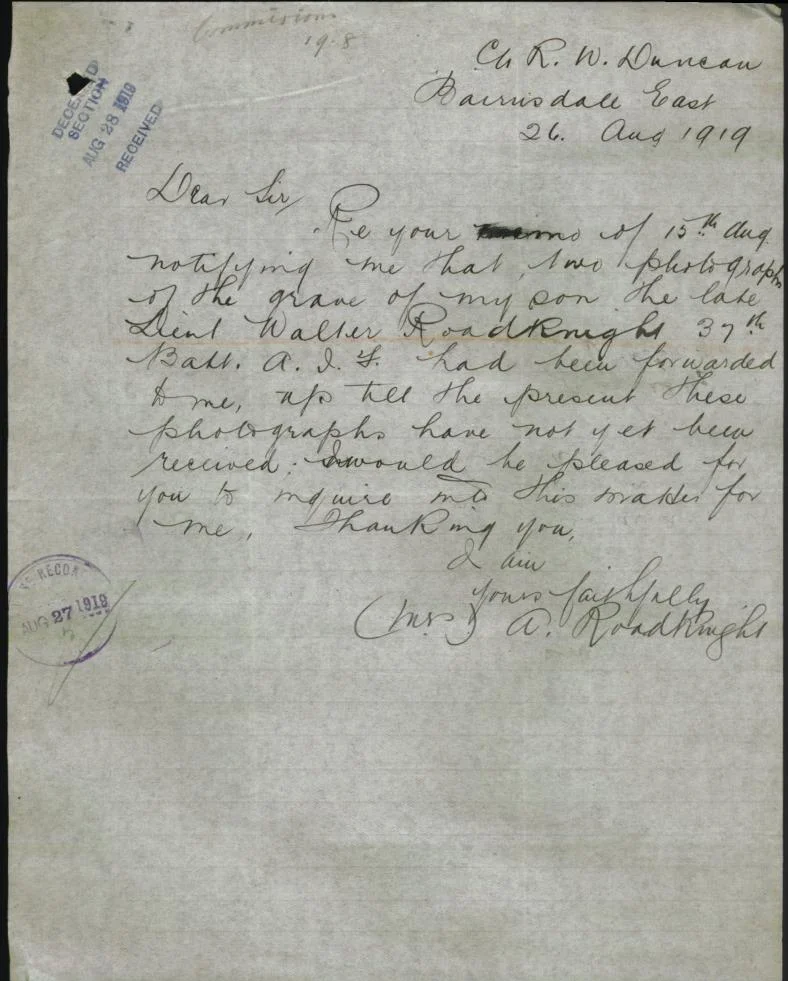 Commission
19 8
C/o R. W. Duncan
Bairnsdale East
26. Aug 1919
DECEASED
SECTION
AUG 28 1919
RECEIVED
Dear Sir/
Re your memo of 15th Aug.
notifying me that, two photographs
of the grave of my son the late
Lieut Walter Roadknight 37th
Batt. A. I. F. had been forwarded
to me, up till the present these
photographs have not yet been
received. I would be pleased for
you to inquire into this matter for
me, Thanking you,
I am
yours faithfully
(Mrs) A. Roadknight
AUG 27 1919